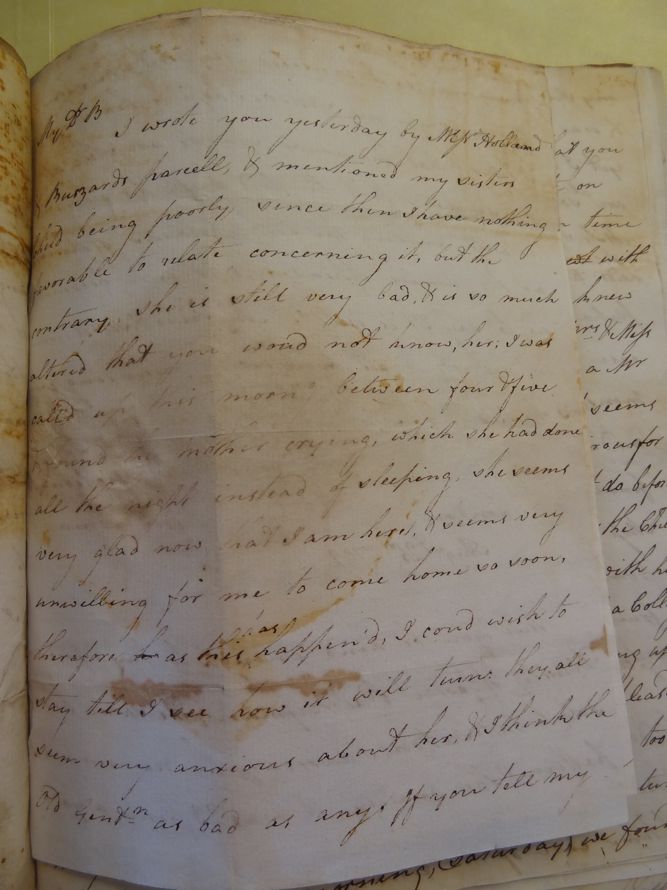 My Dr B I wrote you yesterday by Messrs Holland
& Buzzards parcell, & mentioned my sisters
child being poorly since then I have nothing
favorable to relate concerning it, but the
contrary, she is still very bad, & is so much
altered that you wou'd not know, her; I was
call'd up this morng between four & five
& found the mother crying, which she had done
all the night instead of sleeping, she seems
very glad now that I am here, & seems very
unwilling for me to come home so soon,
therefore as as happen'd, I cou'd wish to
stay till I see how it will turn. they all
seem very anxious about her, & I think the
Old Gentn as bad as any. If you tell my
at you
on
time
with
knew
& Miss
a Mr
seems
for
do befor
the
with
a Coll
up
too
rning, (Saturday) we foun